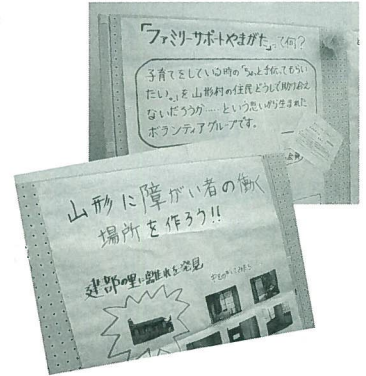 「ファミリーサポートやまがた」って何?
子育てをしている時の「ちょっと手伝ってもらい
たい。」を山形村の住民どうしで助け合え
ないだろうか……という思いから生まれた
ボランティアグループです。
山形に障がい者の働く
場所を作ろう!!
建部の里に離れを発見